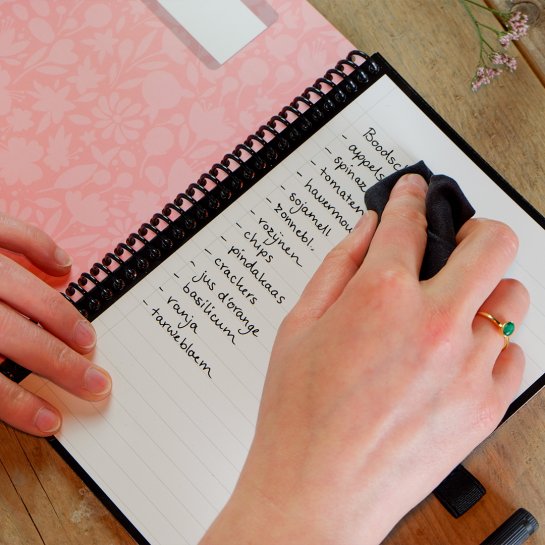 Boodsc
- appels
- spinaz
- tomaten
- havermou
- sojamell
- zonnebl.
- rozijnen
- chips
- pindakaas
- crackers
- jus d'orange
- basilicum
- ranja
- tarwebloem